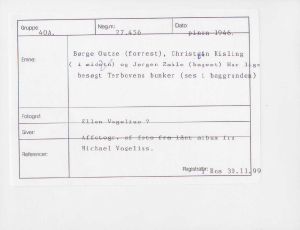 Gruppe: 40A. Neg.nr.: 27.456 Dato: pinen 1946.
Emne: Børge Outze (forrest), Christian Kisling
( i midten) og Jørgen (bagest) Har lige
besøgt Terbovens bunker (ses i baggrunden)
Fotograf: Ellen Vogelius ?
Giver: Affotogr. af foto fra lånt album fra
Referencer: Michael Vogelius.
Registrator: Bos 30.11.99